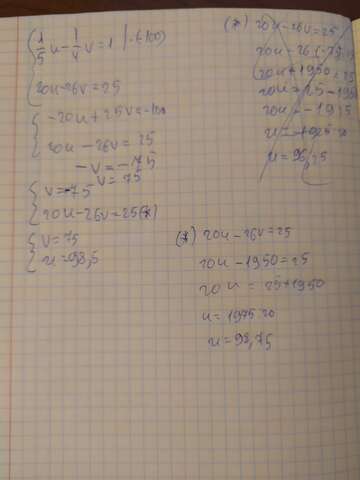 1/5 u - 1/4 v = 1 | ·(-100)
20u - 26v = 25
-20u + 25v = -100
20u - 26v = 25
-v = -75
v = 75
v = 75
20u - 26v = 25 (*)
v = 75
u = 98,5
(*) 20u - 26v = 25
20u
20u + 1950 = 25
20u = 25 - 1950
20u = -1925
u = 96,25
(*) 20u - 26v = 25
20u - 1950 = 25
20u = 25 + 1950
u = 1975:20
u = 98,75